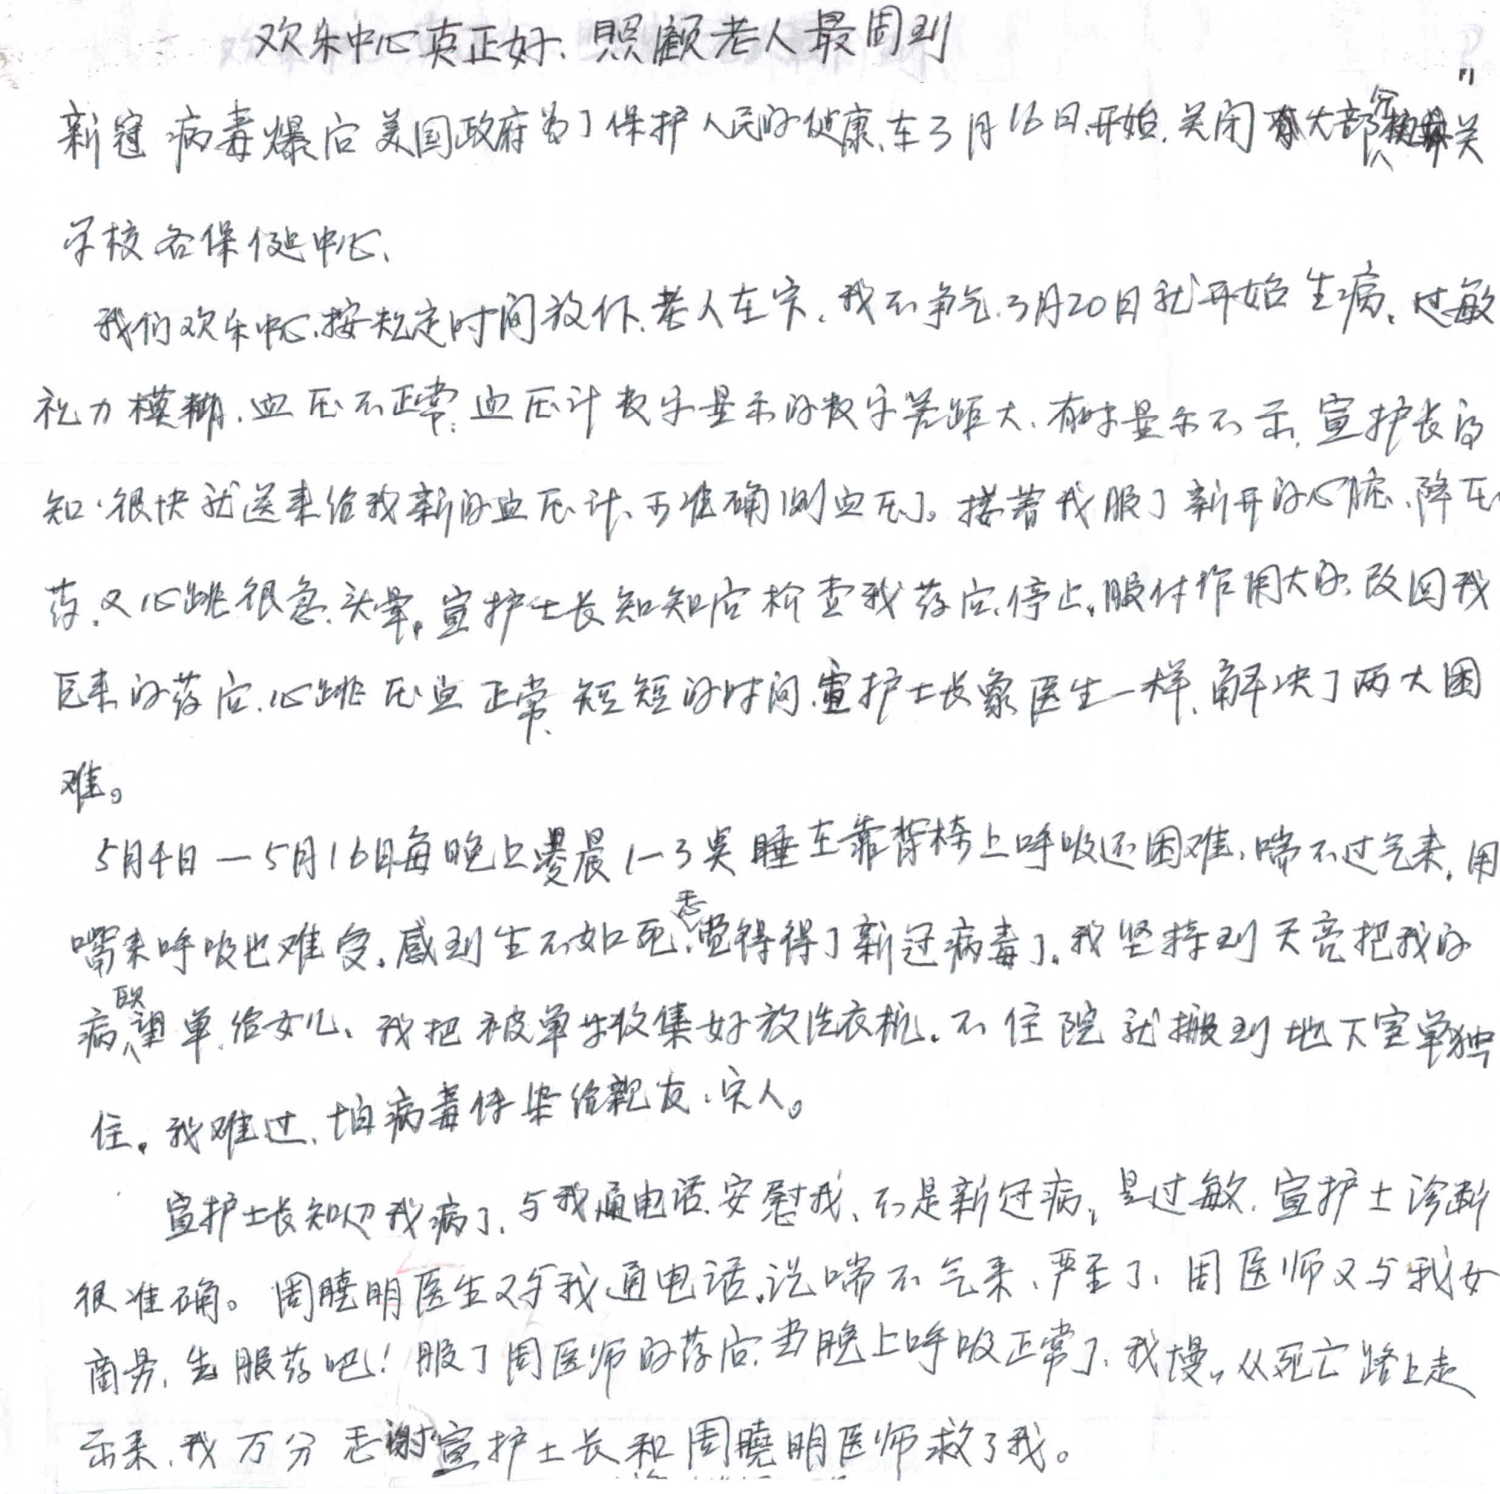 欢乐中心真正好、照顾老人最周到
新冠病毒爆后美国政府为了保护人民的健康、在3月16日、开始、关闭大部分机关
学校各保健中心、
我们欢乐中心、按规定时间放假、老人在家、我不争气、3月20日就开始生病、过敏
视力模糊、血压不正常、血压计数字显示的数字差距大、有时显示不示、宣护长得
知、很快就送来给我新的血压计、可准确测血压了。接着我服了新开的心脏、降压
药、又心跳很急、头晕。宣护士长知知后检查我药后、停止、服付作用大的、改回我
原来的药后、心跳压血正常、短短的时间、宣护士长象医生一样、解决了两大困
难。
5月4日—5月16日每晚上凌晨1-3点睡在靠背椅上呼吸还困难、喘不过气来、用
嘴来呼吸也难受。感到生不如死、觉得得了新冠病毒了。我坚持到天亮把我的
病单、给女儿、我把被单收集好放洗衣机。不住院就搬到地下室单独
住。我难过、怕病毒传染给亲友、家人。
宣护士长知道我病了、与我通电话、安慰我、不是新冠病、是过敏、宣护士诊断
很准确。周晓明医生又与我通电话、说喘不气来、严重了、周医师又与我女
商务、先服药吧！服了周医师的药后、当晚上呼吸正常了、我慢慢从死亡路上走
出来、我万分感谢宣护士长和周晓明医师救了我。